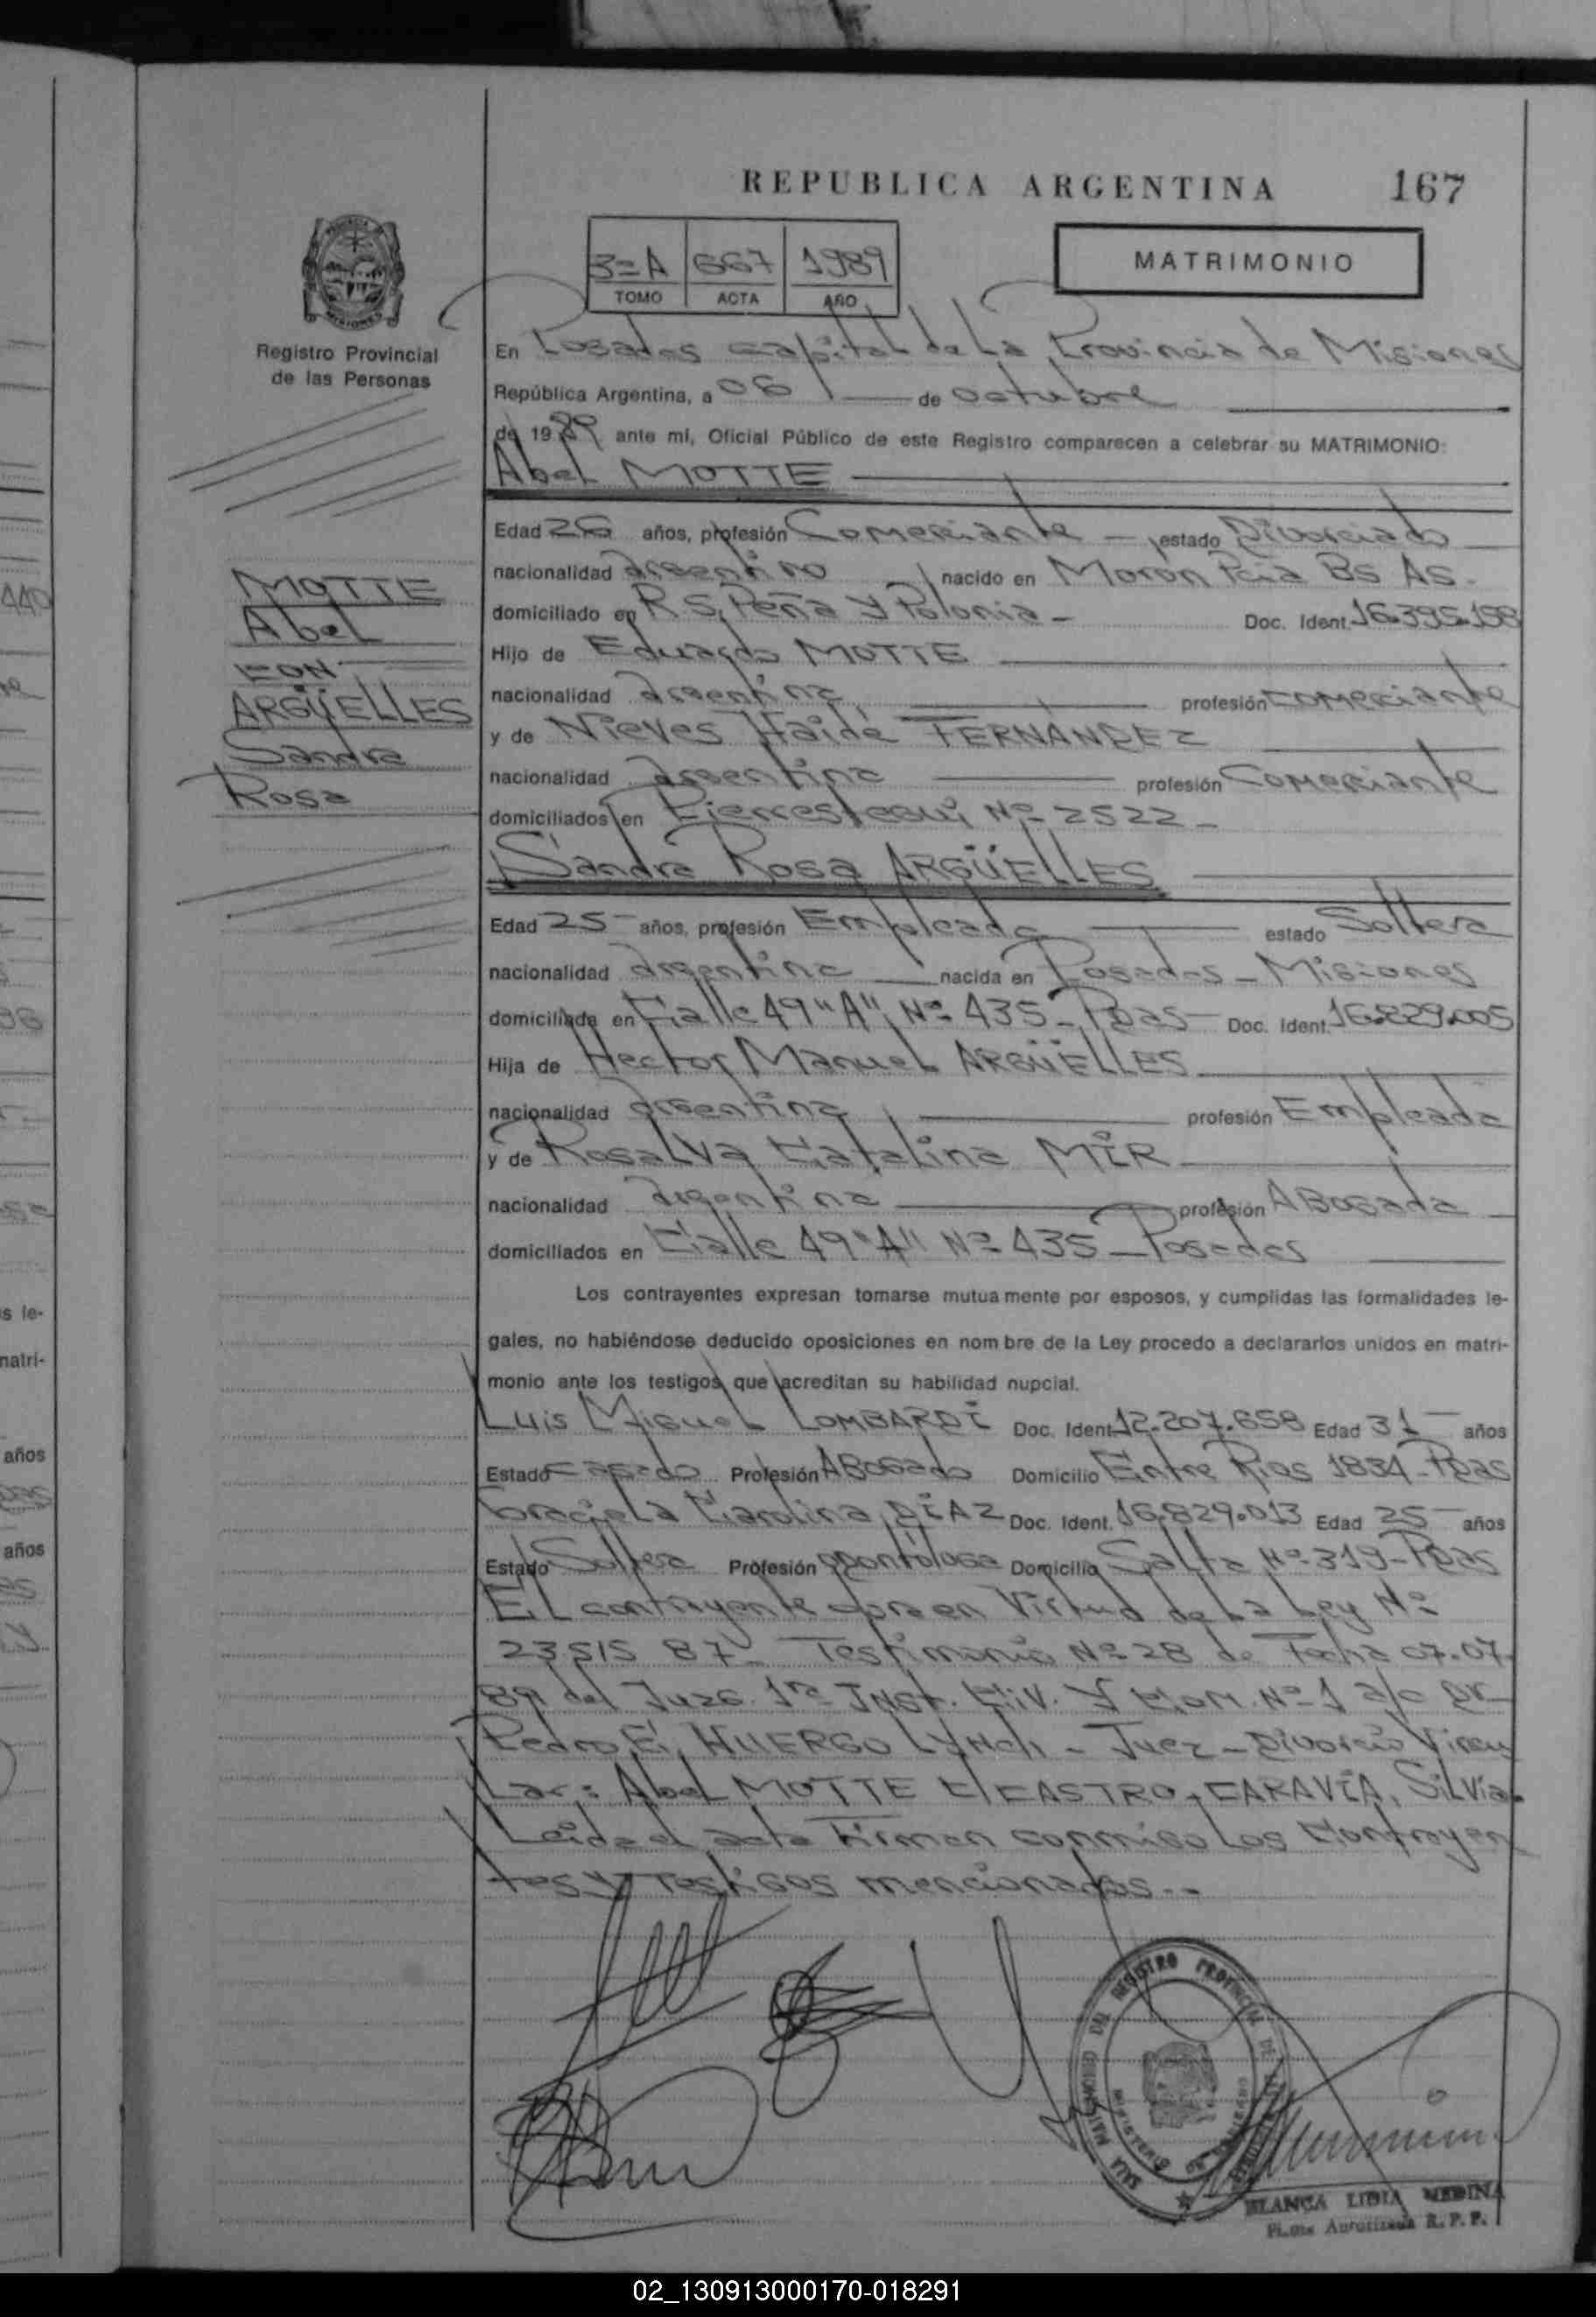 REPUBLICA ARGENTINA 167
3=A 667 1989
TOMO ACTA AÑO
MATRIMONIO
Registro Provincial
de las Personas
En Posadas Capital de La Provincia de Misiones
República Argentina, a 06 de octubre
de 1989 ante mí, Oficial Público de este Registro comparecen a celebrar su MATRIMONIO:
Abel MOTTE
Edad 26 años, profesión Comerciante estado Divorciado
nacionalidad argentino nacido en Morón Pcia Bs As.
domiciliado en R.S. Peña y Polonia - Doc. Ident. 16.395.198
Hijo de Eduardo MOTTE
nacionalidad argentina profesión comerciante
y de Nieves Haidé FERNANDEZ
nacionalidad argentina profesión Comerciante
domiciliados en Nº 2522 -
Sandra Rosa ARGÜELLES
Edad 25 años, profesión Empleada estado Soltera
nacionalidad argentina nacida en Posadas - Misiones
domiciliada en Calle 49 "A" Nº 435 - Pdas Doc. Ident. 16.829.005
Hija de Hector Manuel ARGÜELLES
nacionalidad argentina profesión Empleada
y de Rosalva Catalina MIR
nacionalidad argentina profesión ABogada
domiciliados en Calle 49 "A" Nº 435 - Posadas
Los contrayentes expresan tomarse mutuamente por esposos, y cumplidas las formalidades le-
gales, no habiéndose deducido oposiciones en nombre de la Ley procedo a declararlos unidos en matri-
monio ante los testigos que acreditan su habilidad nupcial.
Luis Miguel LOMBARDI Doc. Ident. 12.207.658 Edad 31 años
Estado Casado Profesión ABogado Domicilio Entre Rios 1834 - Pdas
Graciela Carolina DIAZ Doc. Ident. 16.829.013 Edad 25 años
Estado Soltera Profesión odontóloga Domicilio Salta Nº 319 - Pdas
El contrayente obra en Virtud de La Ley Nº
23515 87 - Testimonio Nº 28 de Fecha 07.07.
89 del Juzg. 1ra Inst. Civ. y Com. Nº 1 a/c Dr
Pedro E. HUERGO LYNch - Juez - Divorcio Vincu
Lar: Abel MOTTE C/ CASTRO - CARAVIA, Silvia.
Leida el acta Firman conmigo Los Contrayen
tes y Testigos mencionados..
MOTTE
Abel
CON
ARGÜELLES
Sandra
Rosa
BLANCA LIDIA MEDINA
Firma Autorizada R. P. P.
440
s le-
matri-
años
años
02_130913000170-018291